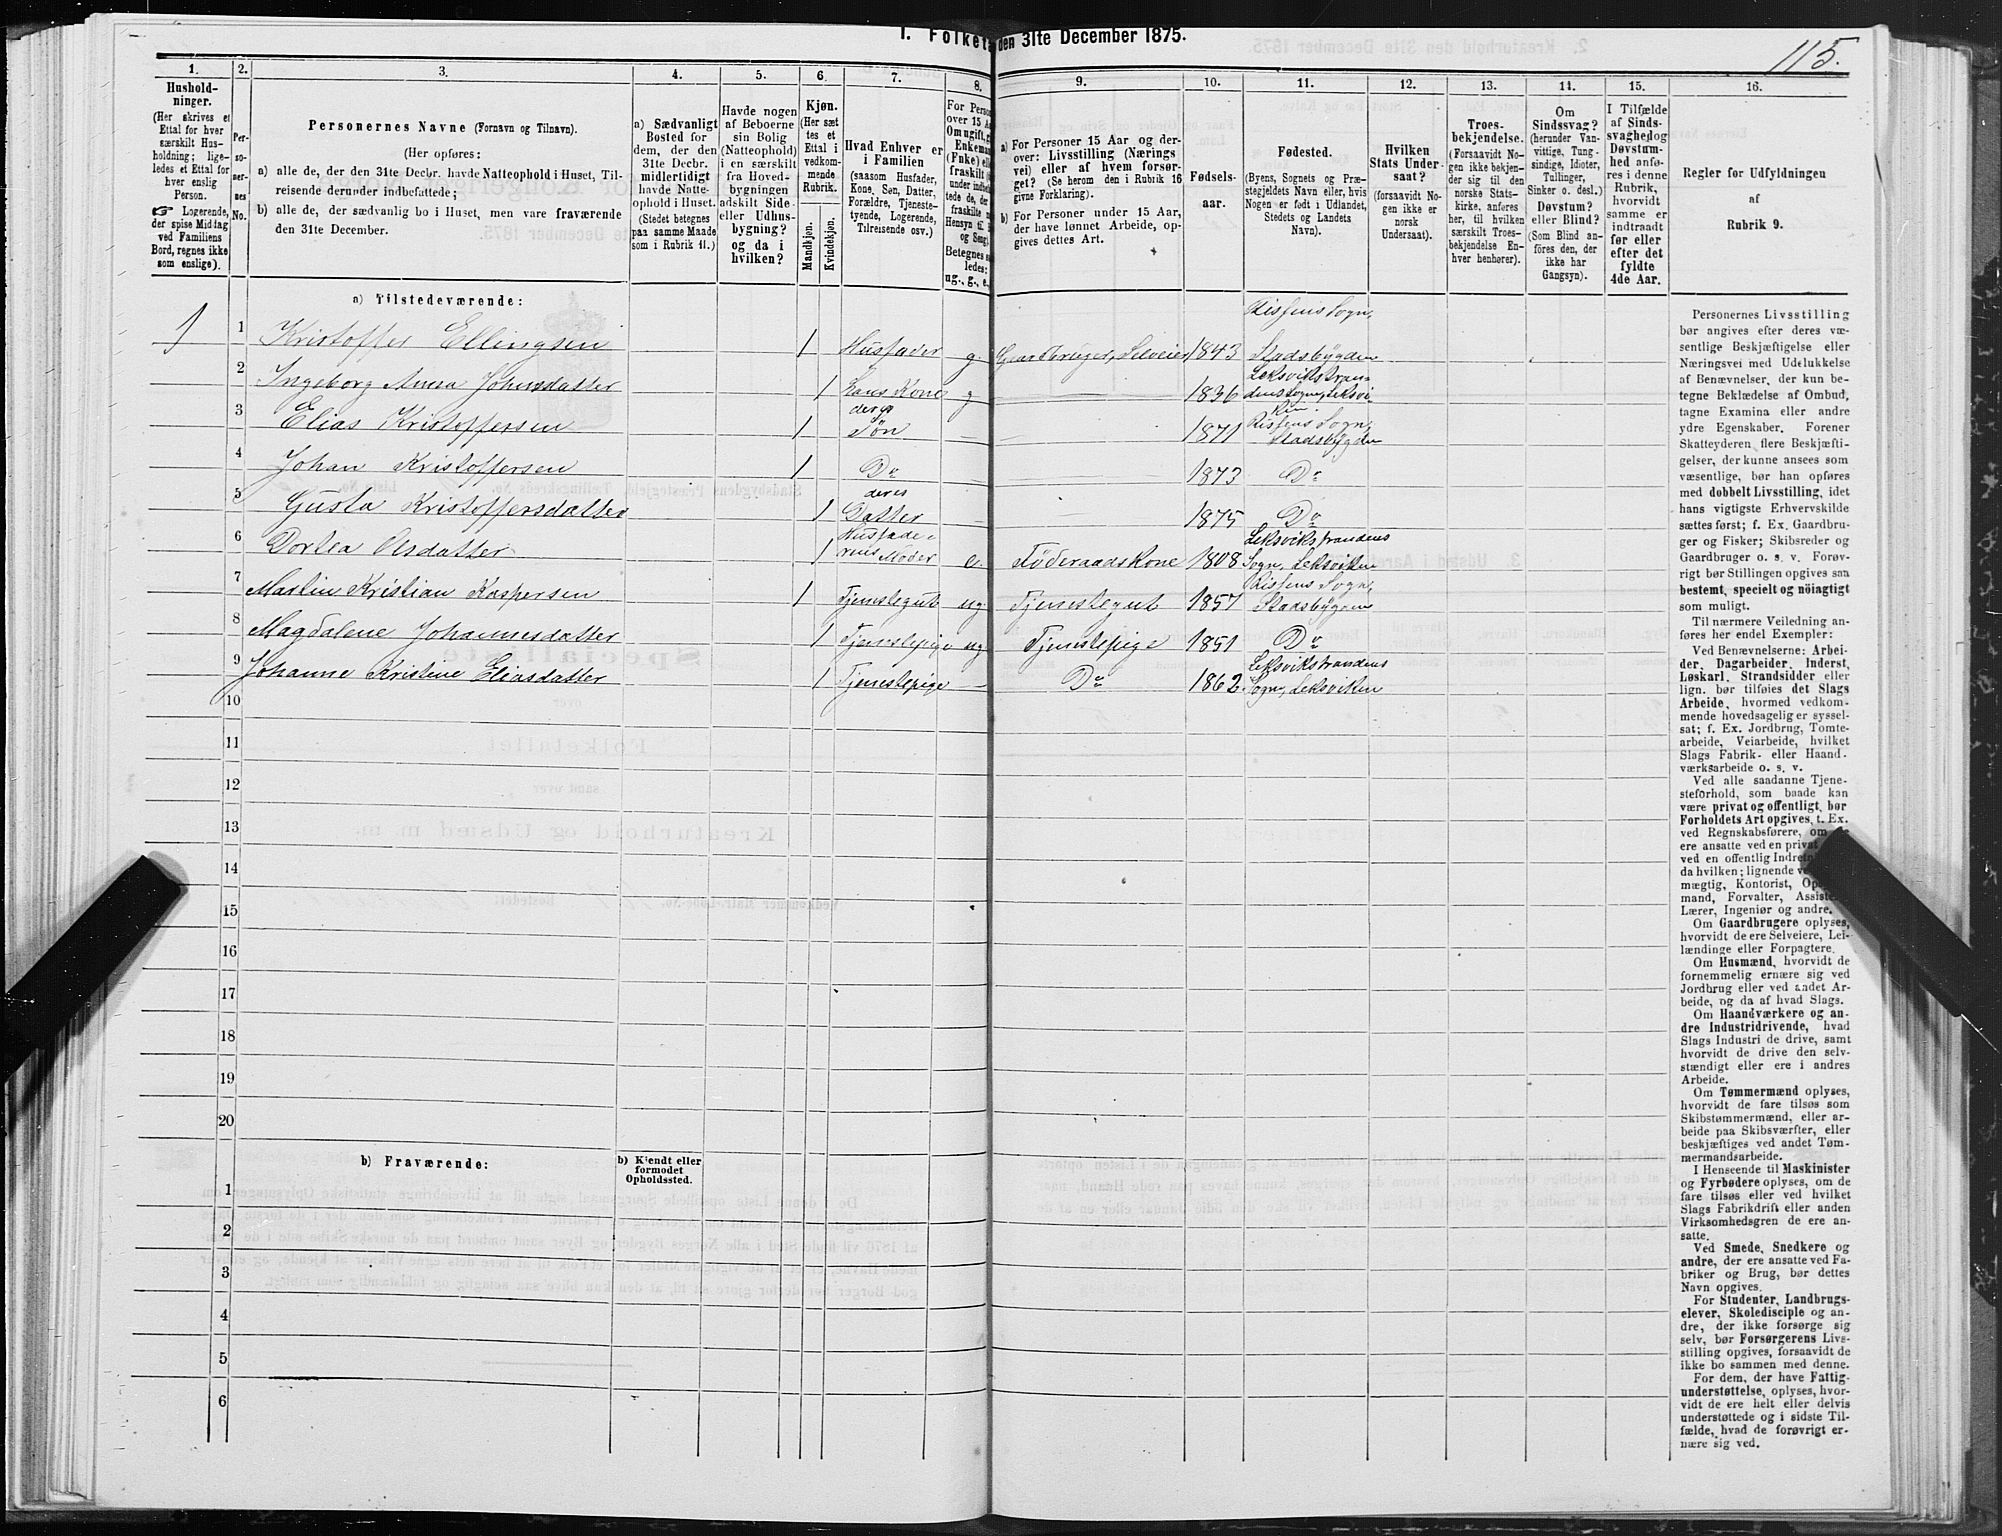 1. Folket den 31te December 1875.
115.
1.
Hushold-
ninger.
(Her skrives et
Ettal for hver
særskilt Hus-
holdning; lige-
ledes et Ettal for
hver enslig
Person.
☞ Logerende,
der spise Middag
ved Familiens
Bord, regnes ikke
som enslige).
2.
Per-
so-
ner-
nes
No.
3.
Personernes Navne (Fornavn og Tilnavn).
(Her opføres:
a) alle de, der den 31te Decbr. havde Natteophold i Huset, Til-
reisende derunder indbefattede;
b) alle de, der sædvanlig bo i Huset, men vare fraværende
den 31te December.
4.
a) Sædvanligt
Bosted for
dem, der den
31te Decbr.
midlertidigt
havde Natte-
ophold i Huset.
(Stedet betegnes
paa samme Maade
som i Rubrik 11.)
5.
Havde nogen
af Beboerne
sin Bolig
(Natteophold)
i en særskilt
fra Hoved-
bygningen
adskilt Side-
eller Udhus-
bygning?
og da i
hvilken?
6.
Kjøn.
(Her sæt
tes et
Ettal i
vedkom-
mende
Rubrik.
Mandkjøn.
Kvindekjøn.
7.
Hvad Enhver er
i Familien
(saasom Husfader,
Kone, Søn, Datter,
Forældre, Tjeneste-
tyende, Logerende,
Tilreisende osv.)
8.
For Perso
over 15 Aa
Om ugift, g
Enkeman
(Fuke) ell
fraskilt
under indb
tede de, der
fraskilte
Hensyn til
og Seng
Betegnes s
ledes:
ug., g., e.,
9.
a) For Personer 15 Aar og der-
over: Livsstilling (Nærings
vei) eller af hvem forsør-
get? (Se herom den i Rubrik 16
givne Forklaring).
b) For Personer under 15 Aar,
der have lønnet Arbeide, op-
gives dettes Art.
10.
Fødsels-
aar.
11.
Fødested.
(Byens, Sognets og Præ-
stegjeldets Navn eller, hvis
Nogen er født i Udlandet,
Stedets og Landets
Navn).
12.
Hvilken
Stats Under-
saat?
(forsaavidt No-
gen ikke er
norsk
Undersaat).
13.
Troes-
bekjendelse.
(Forsaavidt No-
gen ikke bekjen-
der sig til den
norske Stats-
kirke, anføres
her, til hvilken
særskilt Troes-
bekjendelse En-
hver henhører).
14.
Om
Sindssvag?
(herunder Van-
vittige, Tung-
sindige, Idioter,
Tullinger,
Sinker o. desl.)
Døvstum?
eller Blind?
(Som Blind an-
føres den, der
ikke har
Gangsyn).
15.
I Tilfælde
af Sinds-
svaghed og
Døvstum-
hed anfø-
res i denne
Rubrik,
hvorvidt
samme er
indtraadt
før eller
efter det
fyldte
4de Aar.
16.
Regler for Udfyldningen
af
Rubrik 9.
a) Tilstedeværende:
1 1 Kristoffer Ellingsen 1 Husfader g. Gaardbruger, Selveier 1843 Rissens Sogn, Stadsbygden
2 Ingeborg Anna Johnsdatter 1 Hans Kone g 1836 Leksvikstran-
dens Sogn, Leksvi-
ken.
3 Elias Kristoffersen 1 deres Søn 1871 Rissens Sogn, Stadsbygden
4 Johan Kristoffersen 1 Do 1873 Do
5 Gusta Kristoffersdatter 1 deres Datter 1875 Do
6 Dortea Olsdatter 1 Husfade-
rens Moder e. Föderaadskone 1808 Leksvikstrandens Sogn, Leksviken
7 Martin Kristian Kaspersen 1 Tjenestegut ug. Tjenestegut 1857 Rissens Sogn, Stadsbygden
8 Magdalene Johannesdatter 1 Tjenestepige ug Tjenestepige 1851 Do
9 Johanne Kristine Eliasdatter 1 Tjenestepige Do 1862 Leksvikstrandens Sogn, Leksviken
10
11
12
13
14
15
16
17
18
19
20
b) Fraværende:
b) Kjendt eller
formodet
Opholdssted.
1
2
3
4
5
6
Personernes Livsstilling
bør angives efter deres væ-
sentlige Beskjæftigelse eller
Næringsvei med Udelukkelse
af Benævnelser, der kun be-
tegne Beklædelse af Ombud,
tagne Examina eller andre
ydre Egenskaber. Forener
Skatteyderen flere Beskjæfti-
gelser, der kunne ansees som
væsentlige, bør han opføres
med dobbelt Livsstilling, idet
hans vigtigste Erhvervskilde
sættes først; f. Ex. Gaardbru-
ger og Fisker; Skibsreder og
Gaardbruger o. s. v. Forøv-
rigt bør Stillingen opgives saa
bestemt, specielt og nöiagtigt
som muligt.
Til nærmere Veiledning an-
føres her endel Exempler:
Ved Benævnelserne: Arbei-
der, Dagarbeider, Inderst,
Løskarl, Strandsidder eller
lign. bør tilføies det Slags
Arbeide, hvormed vedkom-
mende hovedsagelig er syssel-
sat; f. Ex. Jordbrug, Tomte-
arbeide, Veiarbeide, hvilket
Slags Fabrik- eller Haand-
værksarbeide o. s. v.
Ved alle saadanne Tjene-
steforhold, som baade kan
være privat og offentligt, bør
Forholdets Art opgives, t. Ex.
ved Regnskabsførere, om
ere ansatte ved en privat
ved en offentlig Indretn
da hvilken; lignende ve
mægtig, Kontorist, Op
mand, Forvalter, Assiste
Lærer, Ingeniør og andre.
Om Gaardbrugere oplyses,
hvorvidt de ere Selveiere, Lei-
lændinge eller Forpagtere.
Om Husmænd, hvorvidt de
fornemmelig ernære sig ved
Jordbrug eller ved andet Ar-
beide, og da af hvad Slags.
Om Haandværkere og an-
dre Industridrivende, hvad
Slags Industri de drive, samt
hvorvidt de drive den selv-
stændigt eller ere i andres
Arbeide.
Om Tømmermænd oplyses,
hvorvidt de fare tilsøs som
Skibstømmermænd, eller ar-
beide paa Skibsværfter, eller
beskjæftiges ved andet Tøm-
mermandsarbeide.
I Henseende til Maskinister
og Fyrbødere oplyses, om de
fare tilsøs eller ved hvilket
Slags Fabrikdrift eller anden
Virksomhedsgren de ere an-
satte.
Ved Smede, Snedkere og
andre, der ere ansatte ved Fa-
briker og Brug, bør dettes
Navn opgives.
For Studenter, Landbrugs-
elever, Skoledisciple og an-
dre, der ikke forsørge sig
selv, bør Forsørgerens Livs-
stilling opgives, forsaavidt de
ikke bo sammen med denne.
For dem, der have Fattig-
understøttelse, oplyses, hvor-
vidt de ere helt eller delvis
understøttede og i sidste Til-
fælde, hvad de forøvrigt er-
nære sig ved.